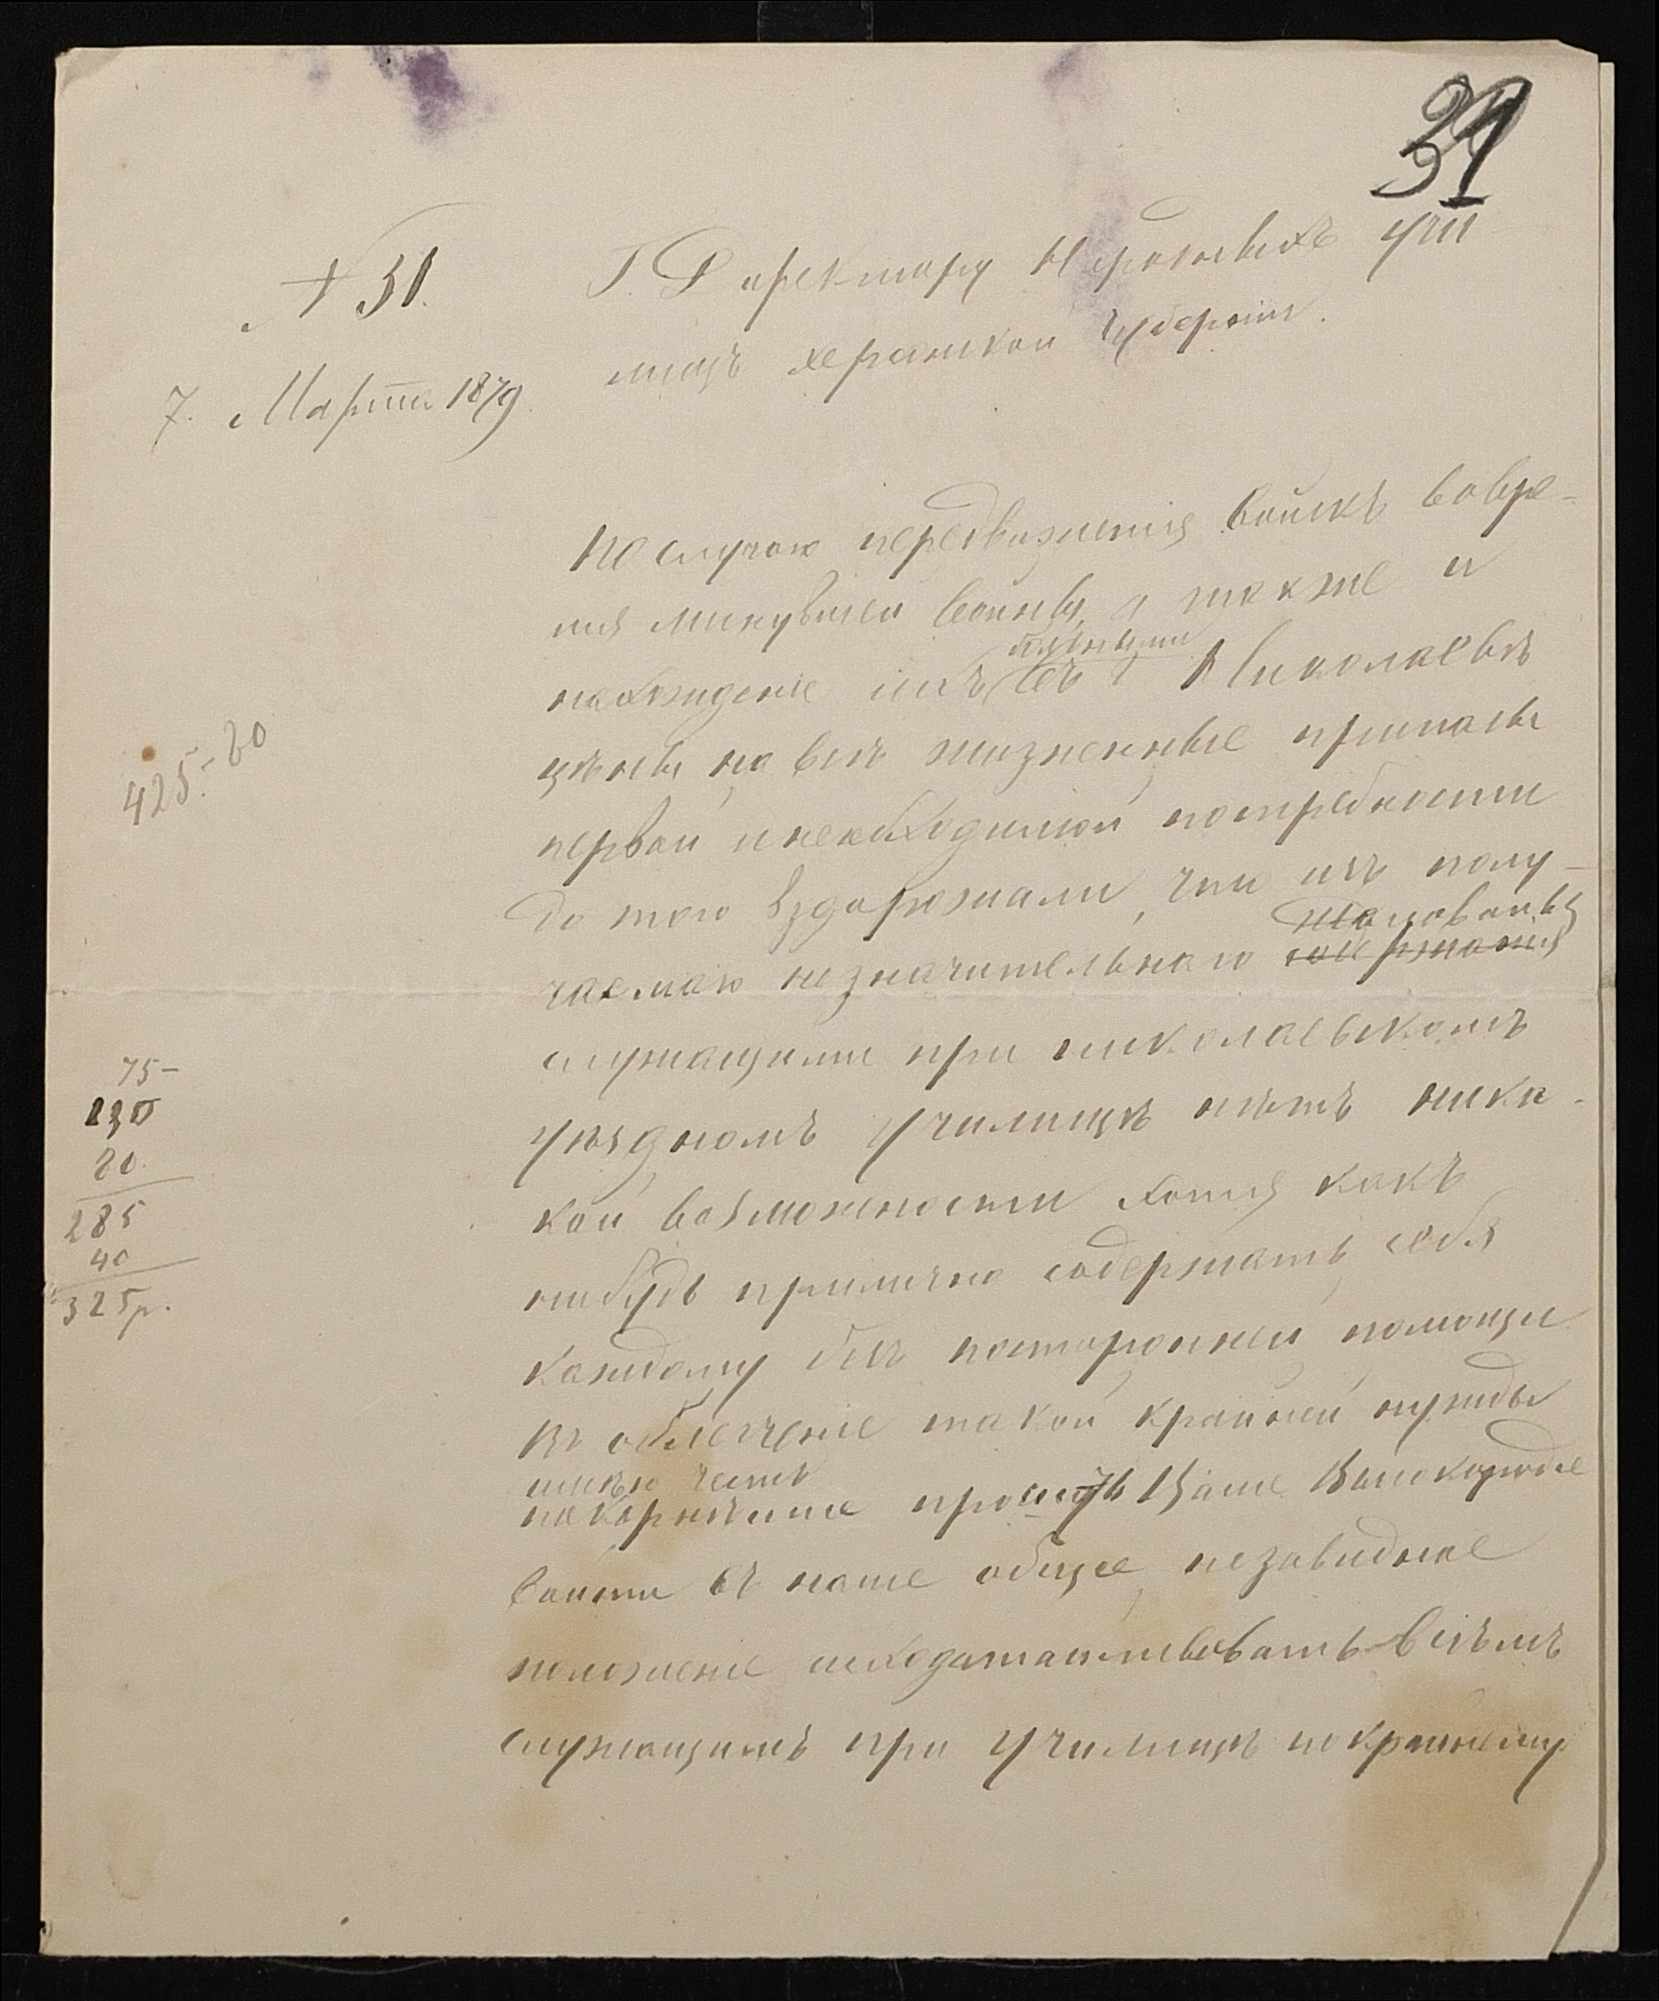 31
№ 31.
7. Марта 1879
Г. Директору Народныхъ учи
лищъ Херсонской Губерніи.
По случаю передвиженія войскъ во вре-
мя минувшей войны, а также и
нахожденіе ихъ въ Николаевѣ
цѣны на всѣ жизненные припасы
первой и необходимой потребности
до того вздорожали, что изъ полу-
жалованья
чаемаго незначительнаго содержанія
служащими при николаевскомъ
уѣздномъ училищѣ нѣтъ ника-
кой возможности хотя какъ
нибудь прилично содержать себя
каждому безъ посторонней помощи
Въ облегченіе такой крайней нужды
имѣю честь
покорнѣйше просить Ваше Высокородіе
войти въ наше общее незавидное
положеніе исходатайствовать всѣмъ
служащимъ при училищѣ покрайнему
425.-80
75-
230
80
285
40
325р.